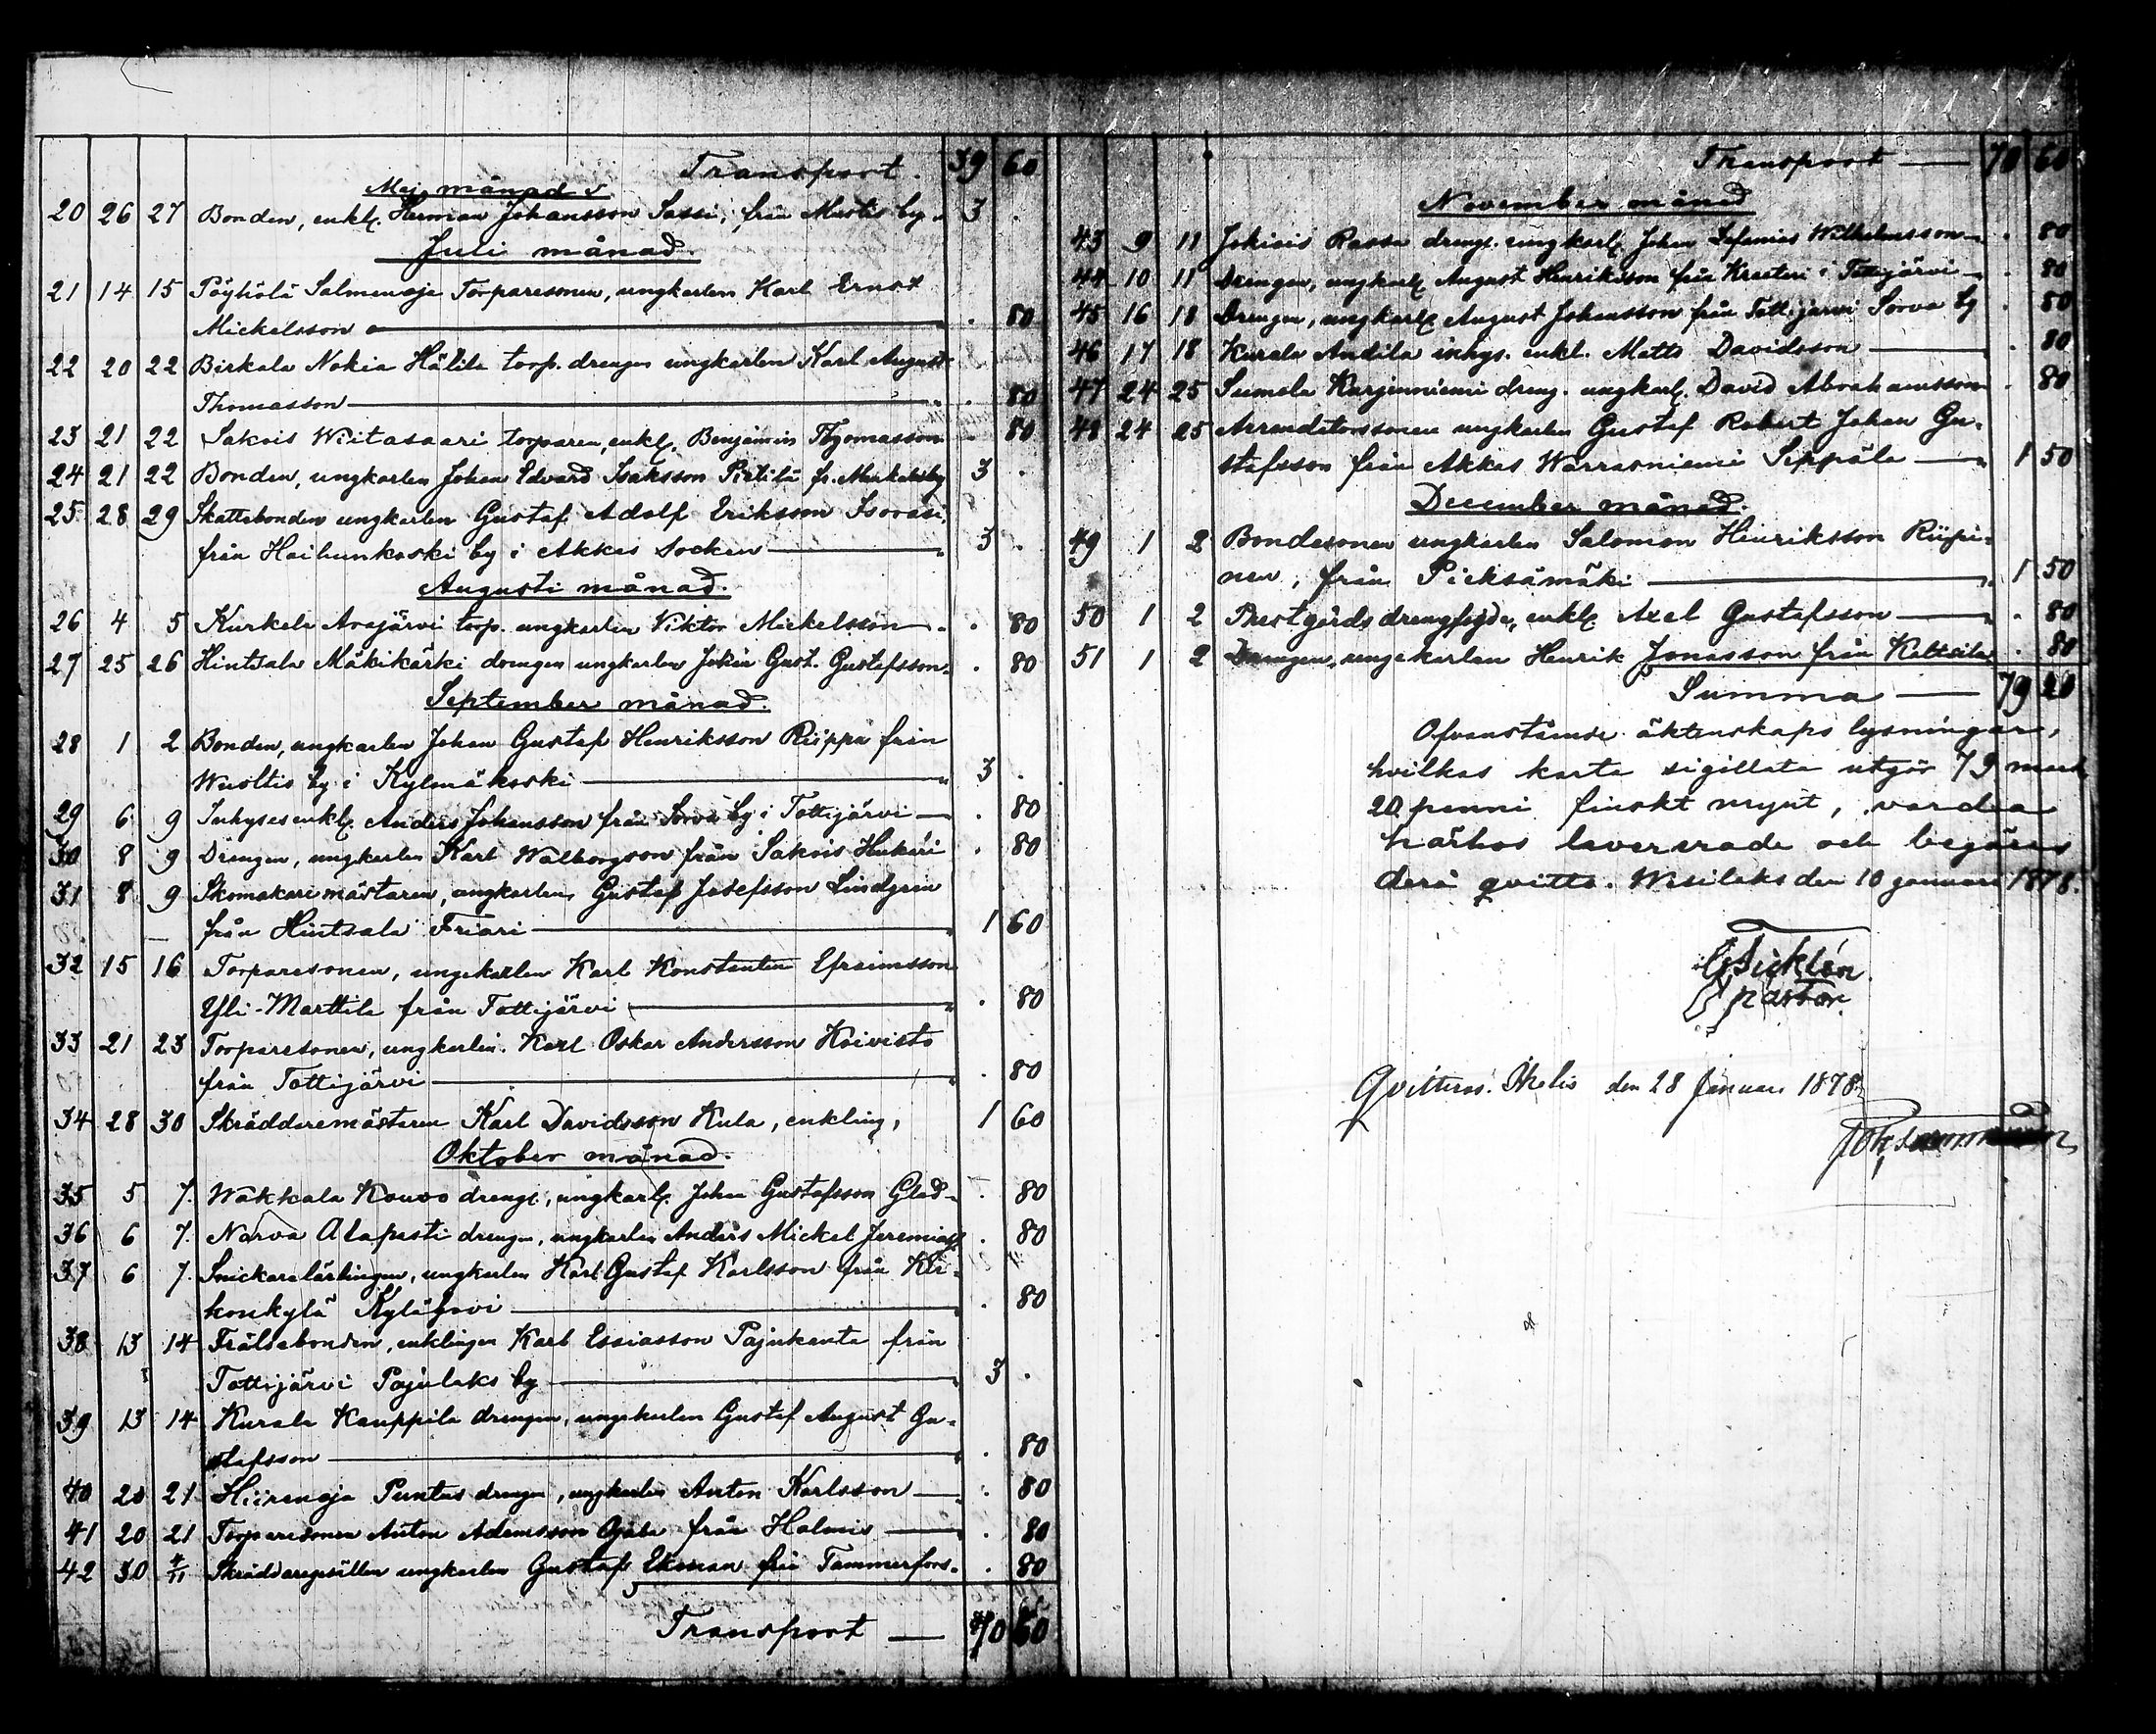 Transport. 39 60
Maj månad
20 26 27 Bonden, enkl. Herman Johansson Sassi, från Mustis by. 3 .
Juli månad.
21 14 15 Pöyhölä Salmenoja Torparesonen, ungkarlen Karl Ernst
Mickelsson . 80
22 20 22 Birkala Nokia Hälila torp. drengen ungkarlen Karl August
Thomasson . 80
23 21 22 Sakois Wiitasaari torparen, enkl. Benjamin Thomasson . 80
24 21 22 Bonden, ungkarlen Johan Edvard Isaksson Pietilä fr. 3 .
25 28 29 Skattebonden ungkarlen Gustaf Adolf Eriksson Isorasi,
från Hoihunkoski by i Akkas Socken 3 .
Augusti månad.
26 4 5 Kurkela Arajärvi torp. ungkarlen Viktor Mickelsson . 80
27 25 26 Hintsala Mäkikärki drengen ungkarlen Johan Gust. Gustafsson . 80
September månad.
28 1 2 Bonden, ungkarlen Johan Gustaf Henriksson Riippa från
by i Kylmäkoski 3 .
29 6 9 Inhyses enkl. Anders Johansson från Sorva by i Tottijärvi . 80
30 8 9 Drengen, ungkarlen Karl Walborgson från Sakois . 80
31 8 9 Skomakaremästaren, ungkarlen Gustaf Josefsson Lindgren
från Hintsala Friari 1 60
32 15 16 Torparesonen, ungekarlen Karl Konstantin Efraimsson
Yli-Marttila från Tottijärvi . 80
33 21 23 Torparesonen, ungkarlen Karl Oskar Andersson Koivisto
från Tottijärvi . 80
34 28 30 Skräddaremästaren Karl Davidsson Kula, enkling, 1 60
Oktober månad.
35 5 7. Wakkala Kouvo drenge, ungkarl. Johan Gustafsson Glad . 80
36 6 7. Narva Alapasti drengen, ungkarlen Anders Mickel . 80
37 6 7. Snickarelärlingen, ungkarlen Karl Gustaf Karlsson från Kir-
konkylä . 80
38 13 14 Frälsebonden, enklingen Karl Essiasson Pajukanta från
Tottijärvi Pajulaks by 3 .
39 13 14 Kurala Kauppila drengen, ungekarlen Gustaf August Gu-
stafsson . 80
40 20 21 Hiirenoja Puntus drengen, ungkarlen Anton Karlsson . 80
41 20 21 Torparesonen Anton Adamsson Ojala från Halmis . 80
42 30 4/11 Skräddaregesällen ungkarlen Gustaf Ekman från Tammerfors. . 80
Transport 70 60
Transport 70 60
November månad
43 9 11 Jokiois Rassa drenge. ungkarl. Johan Wilhelmsson . 80
44 10 11 Drengen, ungkarl. August Henriksson från Krateri i Tottijärvi . 80
45 16 18 Drengen, ungkarl. August Johansson från Tottijärvi Sorva by . 80
46 17 18 Kurala Andila inhys. enkl. Matts Davidsson . 80
47 24 25 Sumela Karjenniemi dreng. ungkarl. David Abrahamsson . 80
48 24 25 Arrendatorssonen ungkarlen Gustaf Robert Johan Gu-
stafsson från Akkas Warrasniemi Seppälä 1 50
December månad.
49 1 2 Bondesonen ungkarlen Salomon Hinriksson Riipi-
nen, från Pieksämäki 1 50
50 1 2 Prestgårds enkl. Axel Gustafsson . 80
51 1 2 Drengen, ungekarlen Henrik Jonasson från . 80
Summa 79 20
Ofvanstående äktenskaps lysningar,
hvilkas karta sigillata utgör 79 mark
20 penni finskt mynt, vardea
härhos levererade och begäres
derå qvitto. Wesilaks den 10 januari 1878.
pastor.
Qvitteras. den 28 Januari 1878.